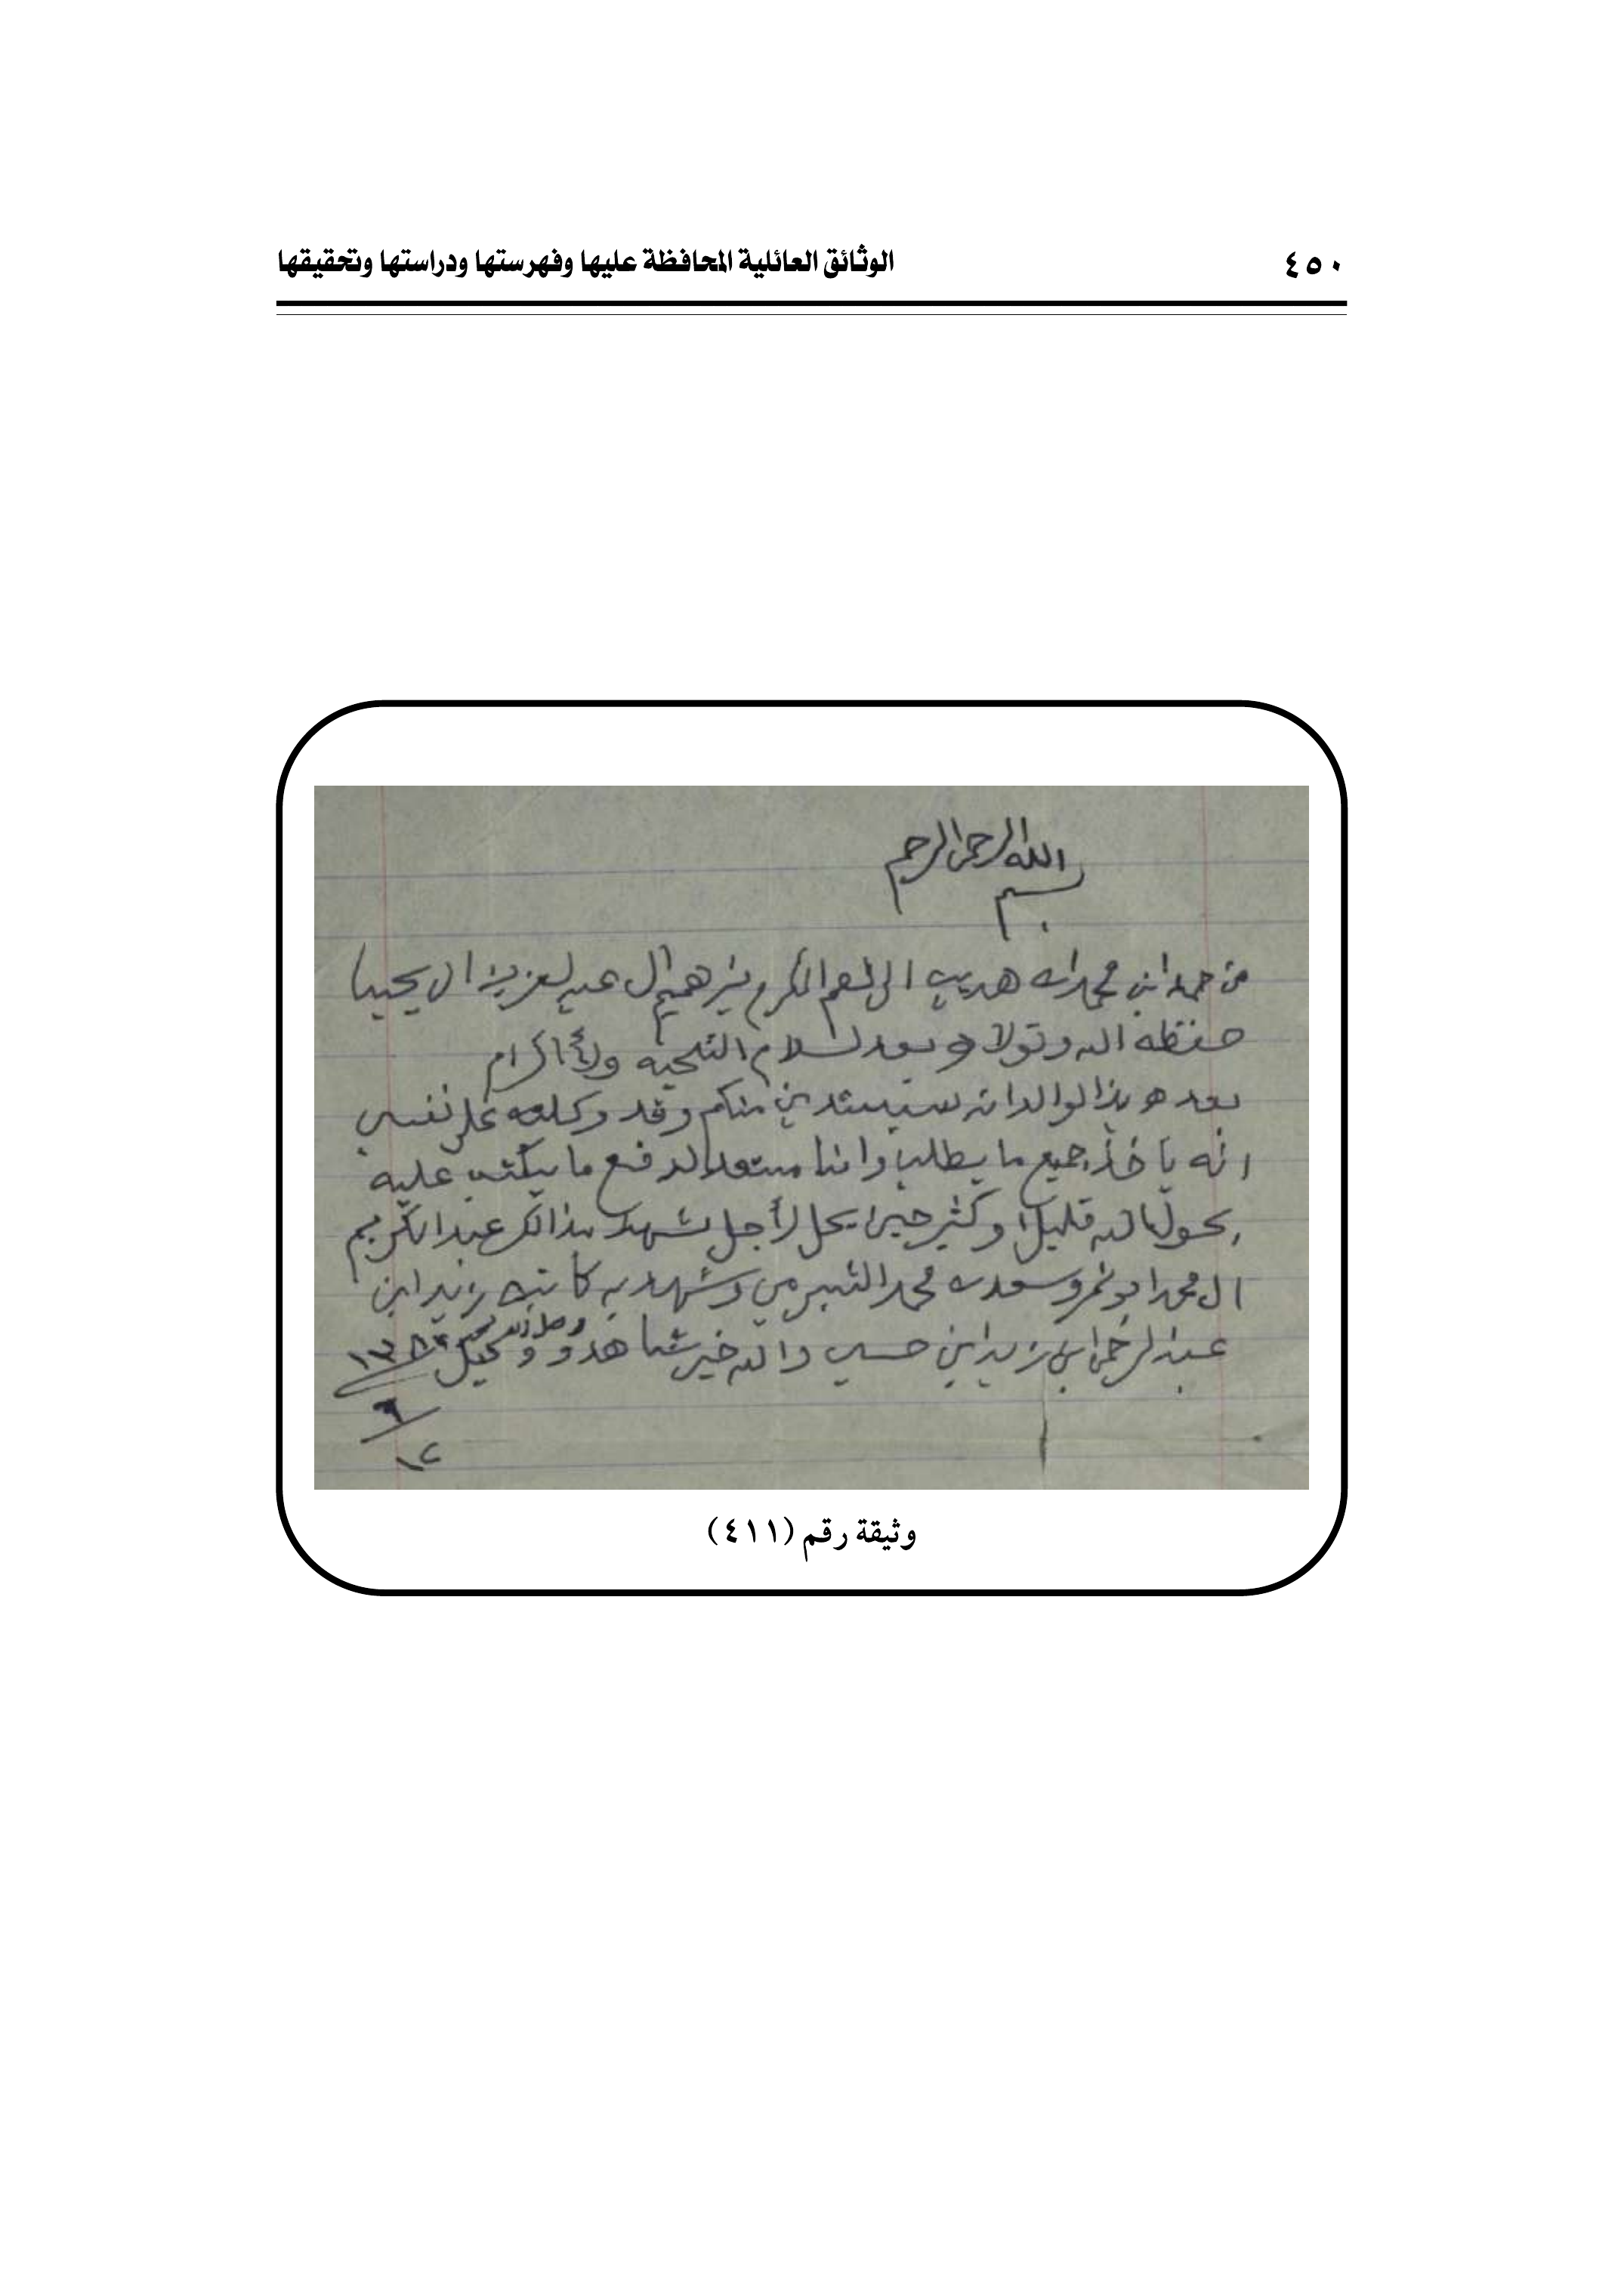 ٤٥٠
الوثائق العائلية المحافظة عليها وفهرستها ودراستها وتحقيقها
بسم الله الرحمن الرحيم
من حمد ابن محمد ال هديب الى العم المكرم ال عبد لعزيز ال يحيا
حفظه الله وتولاه وبعد لسلام التحيه ولأ اكرام
بعد هو بذا لوالد انه منكم وقد وكلته على نفسي
انه ياخذ جميع ما يطلب وانا مستعد لدفع ما يكتب عليه
بحول الله قليل او كثير حين يحل لأجل شهد بذالك عبد الكريم
ال محمد ابو نمر وسعد محمد وشهد به كاتبه زيد ابن
عبد لرحمن ابن زيد ابن حسين والله خير شاهد ووكيل
١٣٨٢
٩
١٢
وثيقة رقم (٤١١)